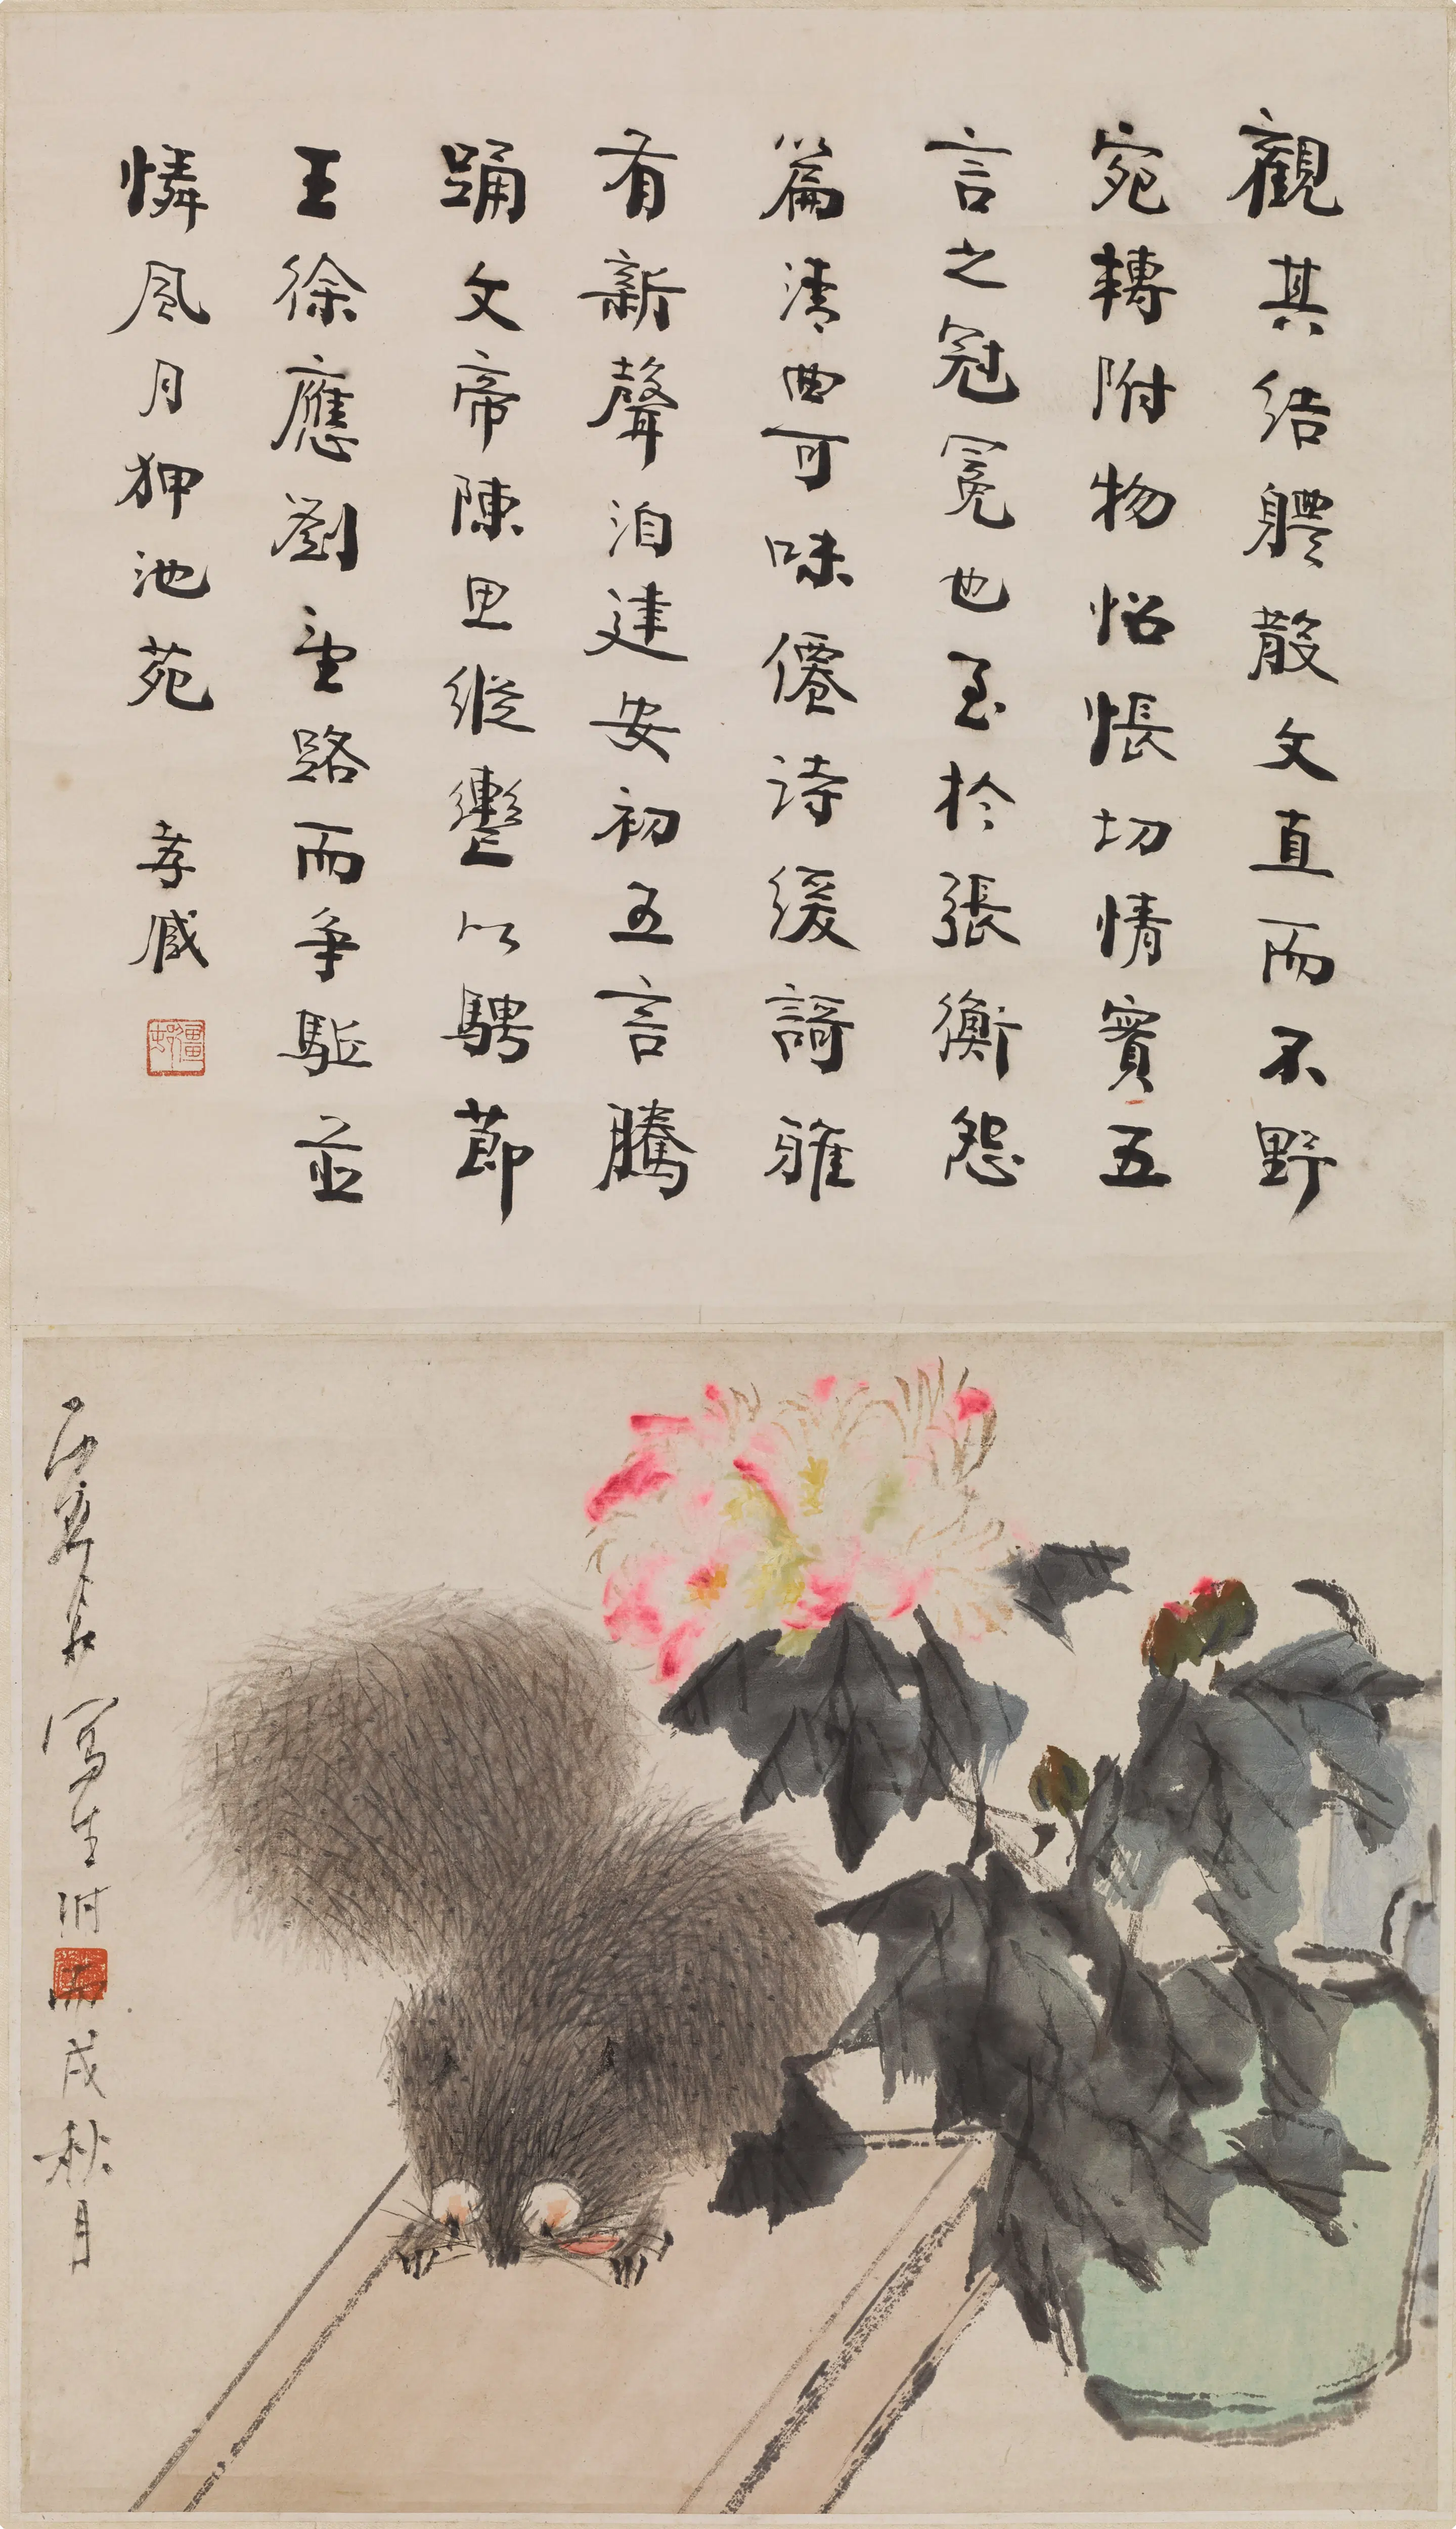 觀其結體散文直而不野
宛轉附物怊悵切情實五
言之冠冕也至於張衡怨
篇清曲可味僊詩緩謌雅
有新聲洎建安初五言騰
踊文帝陳思縱轡以騁節
王徐應劉望路而爭駈並
憐風月狎池苑
孝臧
寫生時
丙戌秋月